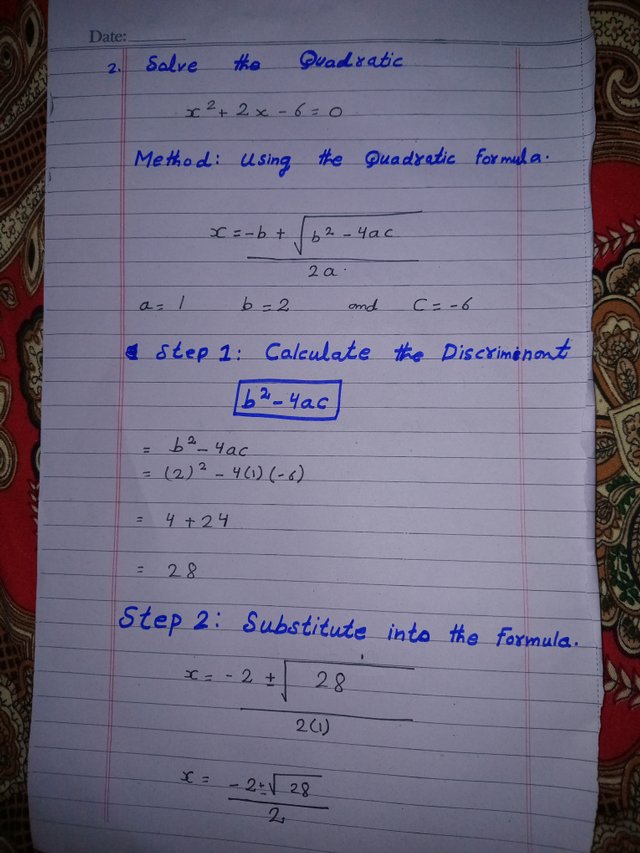 Date:
2. Solve the Quadratic
x² + 2x - 6 = 0
Method: Using the Quadratic formula.
x = -b + √b² - 4ac
2a.
a = 1 b = 2 and C = -6
Step 1: Calculate the Discriminant
b² - 4ac
= b² - 4ac
= (2)² - 4(1)(-6)
= 4 + 24
= 28
Step 2: Substitute into the Formula.
x = -2 ± √28
2(1)
x = -2 ± √28
2